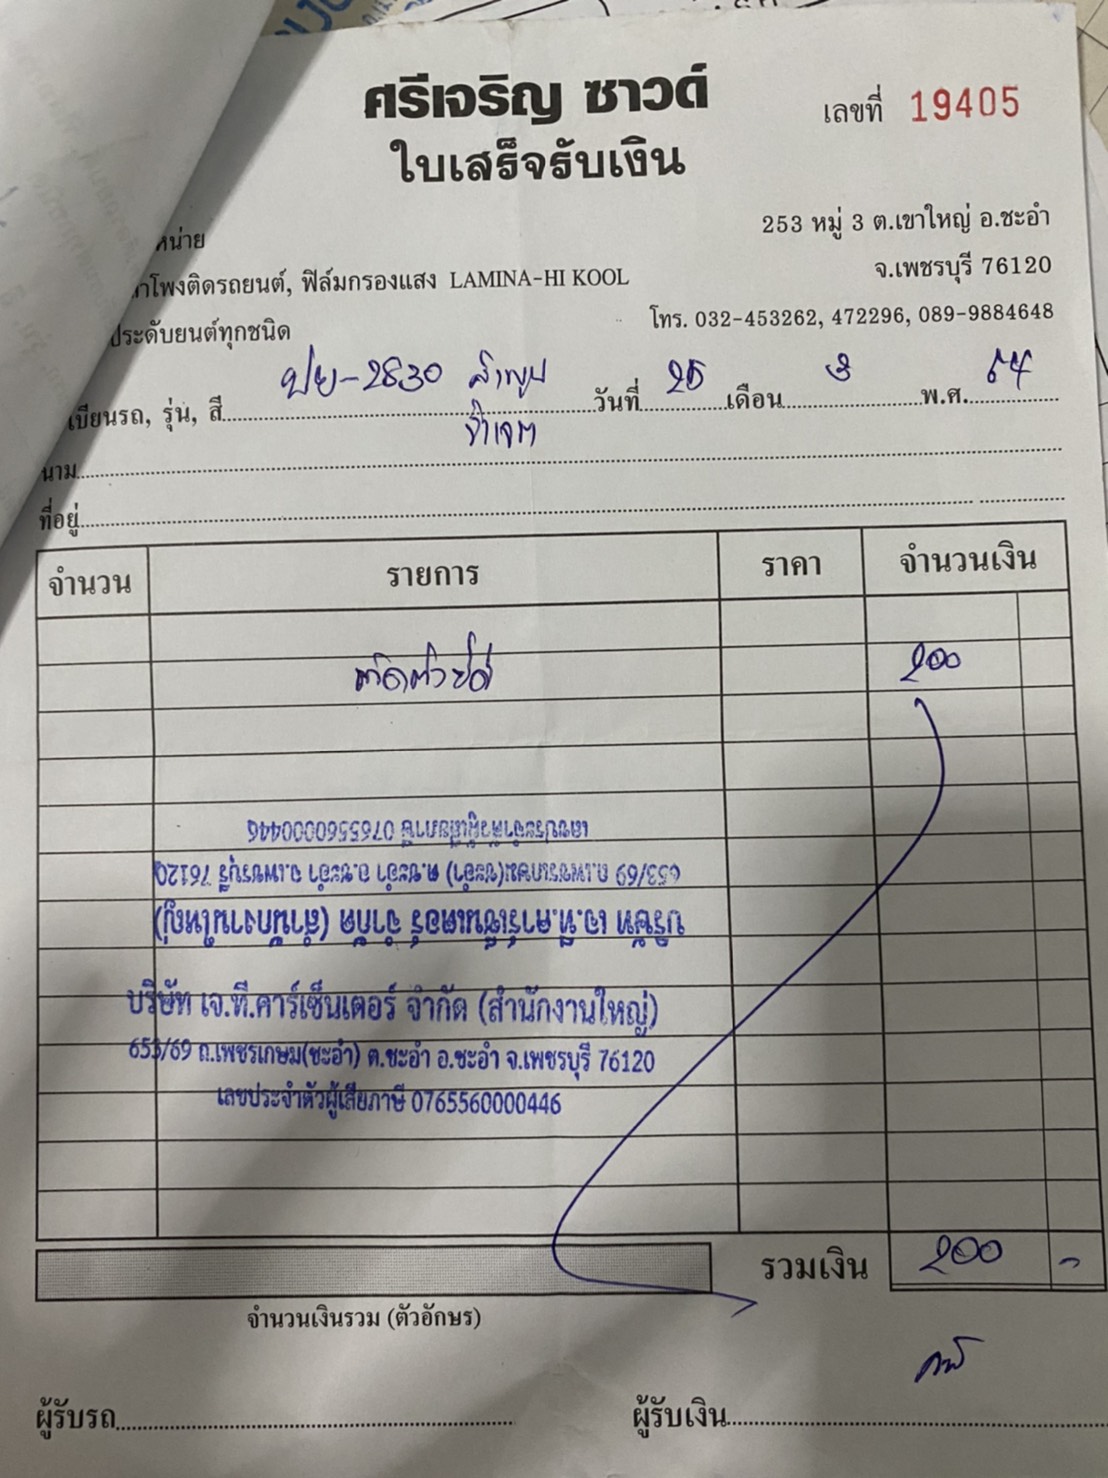 ศรีเจริญ ซาวด์
เลขที่ 19405
ใบเสร็จรับเงิน
253 หมู่ 3 ต.เขาใหญ่ อ.ชะอำ
จ.เพชรบุรี 76120
โทร. 032-453262, 472296, 089-9884648
หน่าย
ลำโพงติดรถยนต์, ฟิล์มกรองแสง LAMINA-HI KOOL
ประดับยนต์ทุกชนิด
เบียนรถ, รุ่น, สี 2830 ลำพูน วันที่ 25 เดือน 3 พ.ศ. 64
นาม
ที่อยู่
จำนวน รายการ ราคา จำนวนเงิน
200
เลขประจำตัวผู้เสียภาษี 0765560000446
653/69 ถ.เพชรเกษม(ชะอำ) ต.ชะอำ อ.ชะอำ จ.เพชรบุรี 76120
บริษัท เจ.ที.คาร์เซ็นเตอร์ จำกัด (สำนักงานใหญ่)
บริษัท เจ.ที.คาร์เซ็นเตอร์ จำกัด (สำนักงานใหญ่)
653/69 ถ.เพชรเกษม(ชะอำ) ต.ชะอำ อ.ชะอำ จ.เพชรบุรี 76120
เลขประจำตัวผู้เสียภาษี 0765560000446
รวมเงิน 200 -
จำนวนเงินรวม (ตัวอักษร)
ผู้รับรถ ผู้รับเงิน